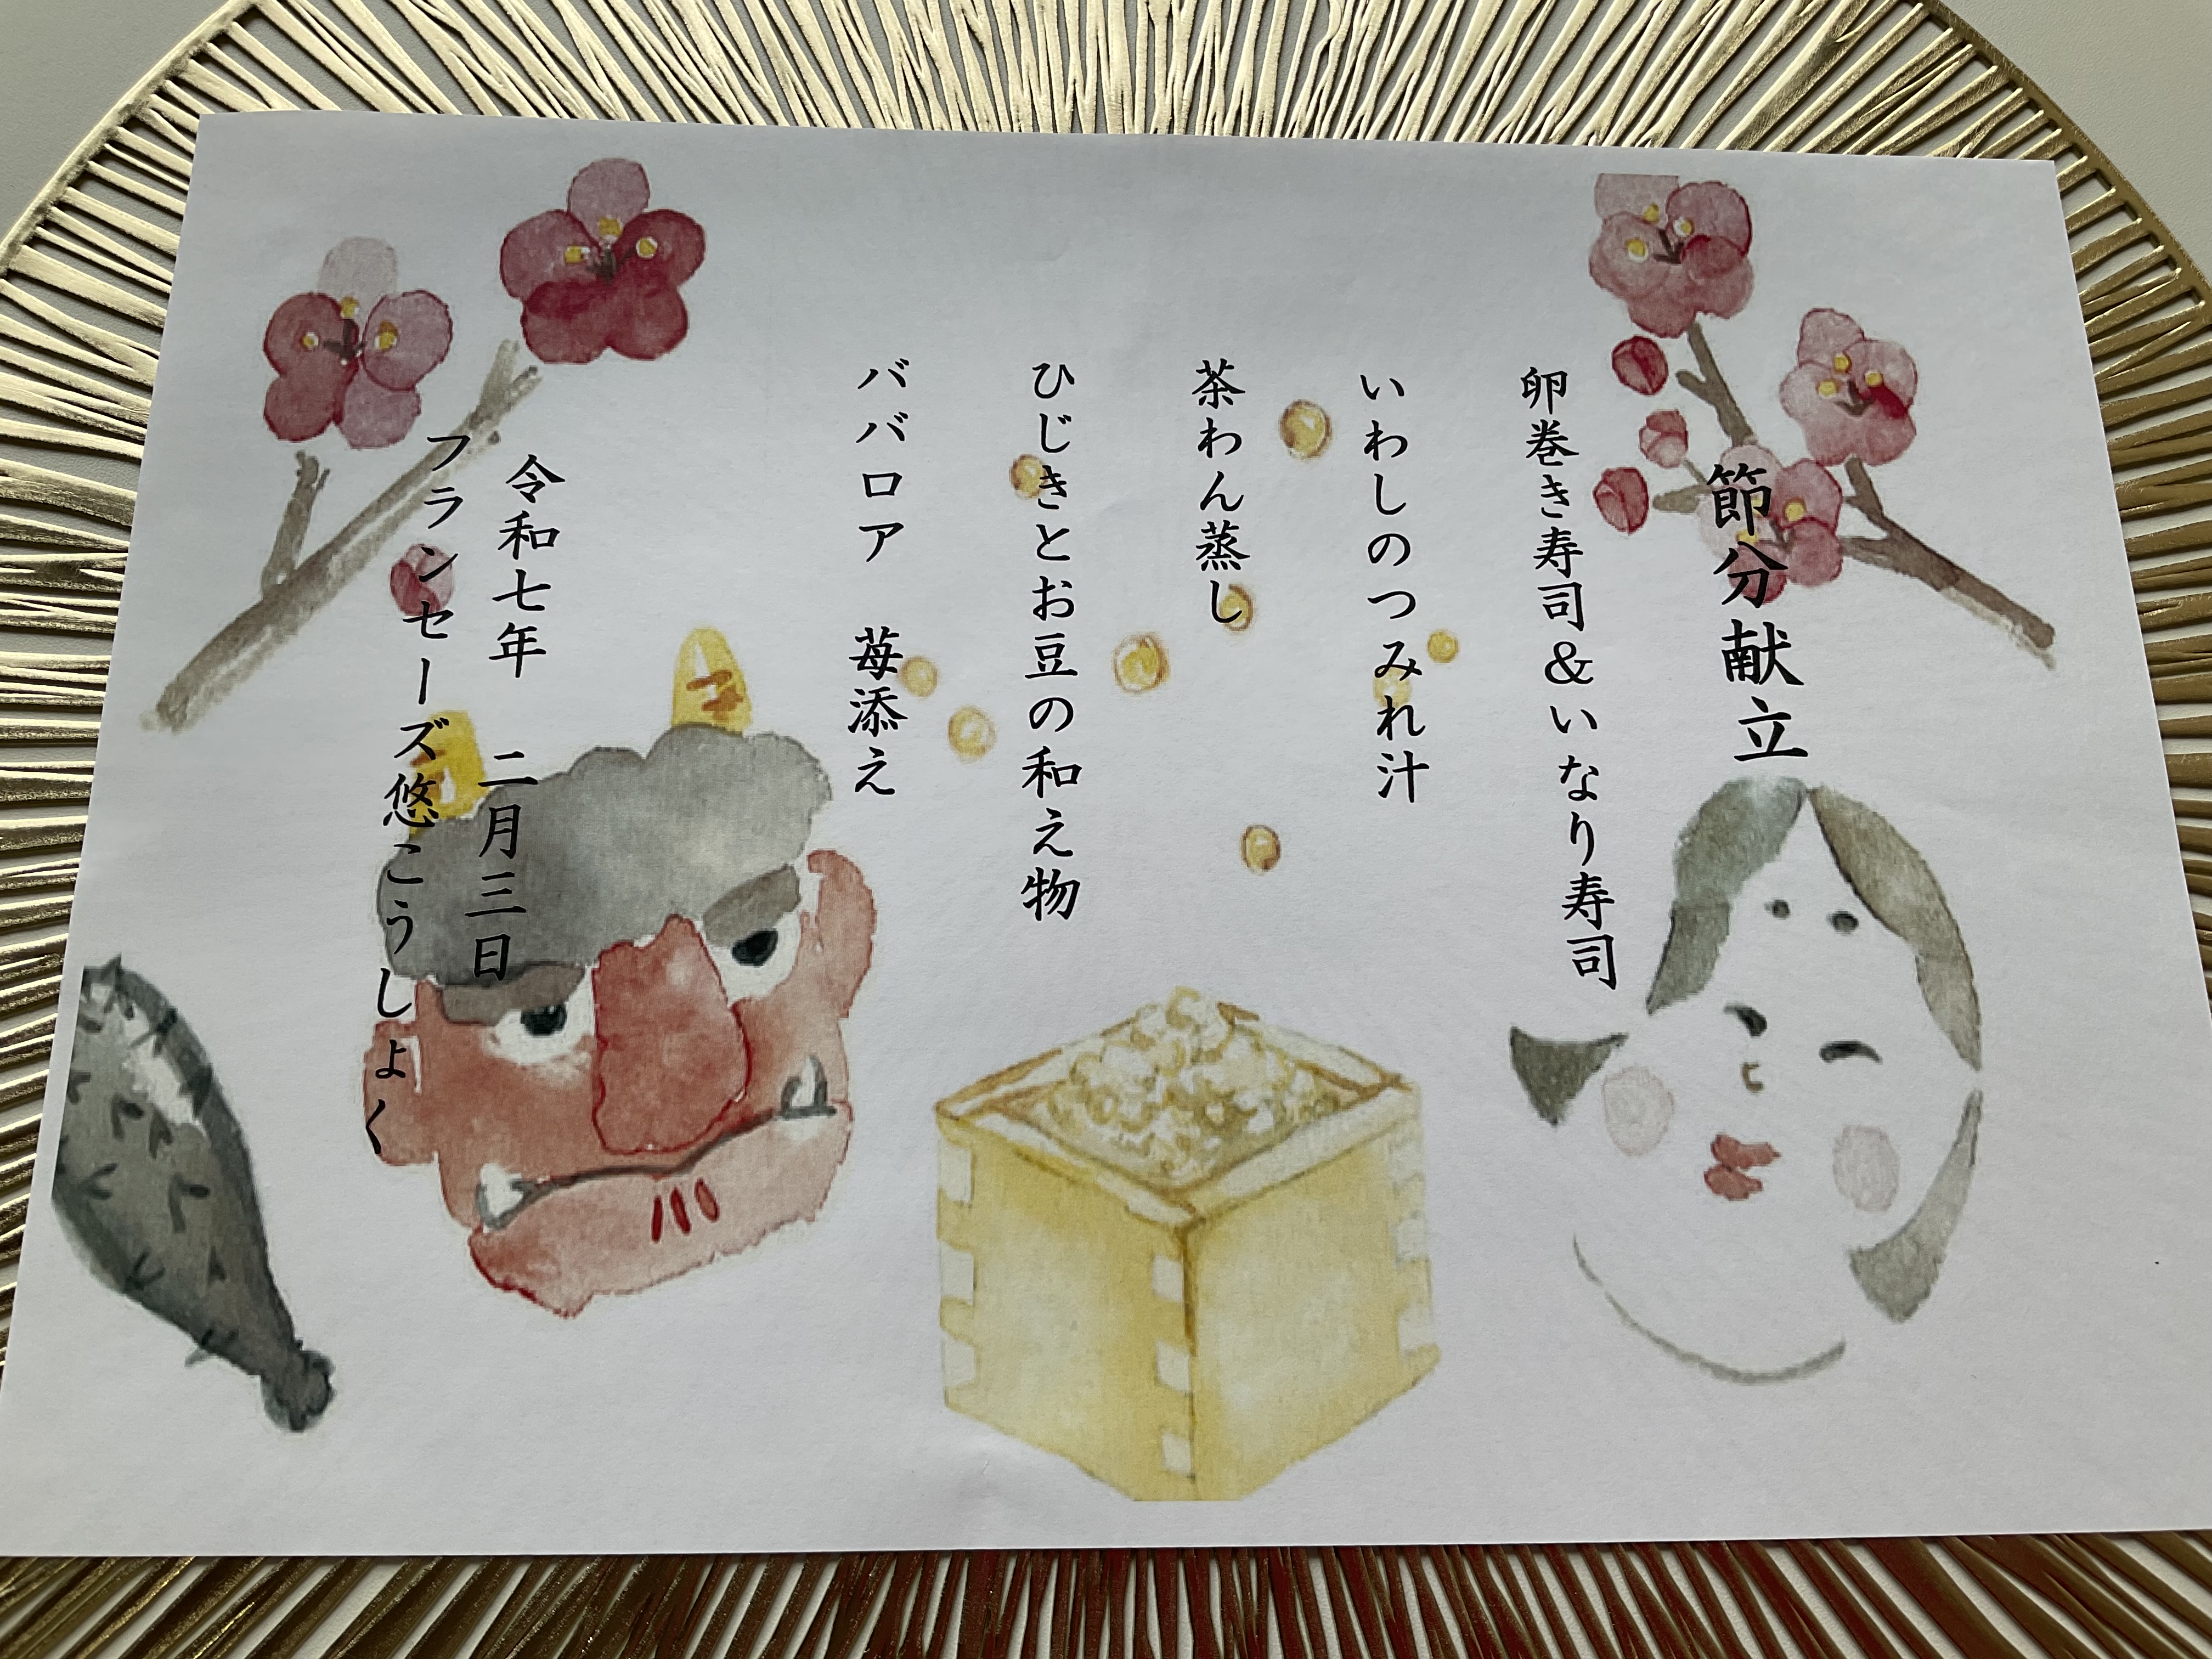 節分献立
卵巻き寿司&いなり寿司
いわしのつみれ汁
茶わん蒸し
ひじきとお豆の和え物
ババロア　苺添え
令和七年　二月三日
フランセーズ悠こうしょく